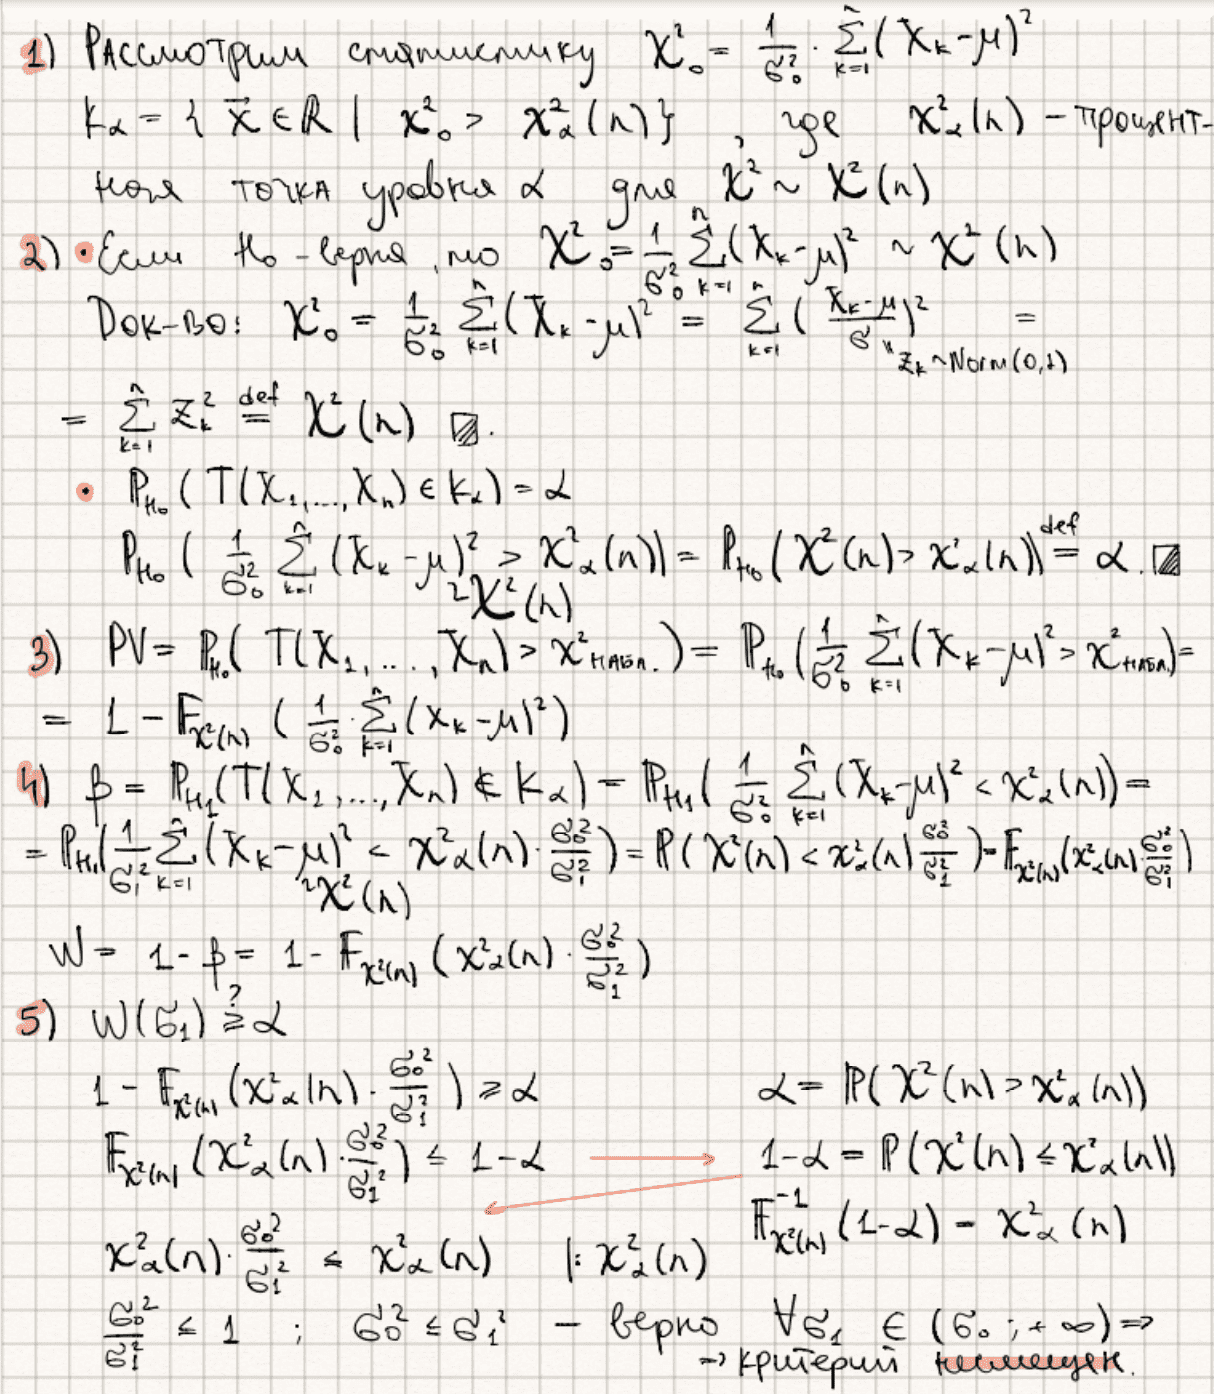 1) Рассмотрим статистику χ²₀ = 1/σ₀² · Σₖ₌₁ⁿ (Xₖ - μ)²
Kα = { x⃗ ∈ ℝ | χ²₀ > χ²α(n)} , где χ²α(n) – процент-
ная точка уровня α для χ² ~ χ²(n)
2) • Если H₀ - верна, то χ²₀ = 1/σ₀² Σₖ₌₁ⁿ (Xₖ - μ)² ~ χ²(n)
Док-во: χ²₀ = 1/σ₀² Σₖ₌₁ⁿ (Xₖ - μ)² = Σₖ₌₁ⁿ ( (Xₖ - μ)/σ )² =
" Zₖ ~ Norm(0,1)
= Σₖ₌₁ⁿ Zₖ² =(def) χ²(n) ▨.
• ℙ_H₀ ( T(X₁,...,Xₙ) ∈ Kα) = α
ℙ_H₀ ( 1/σ₀² Σₖ₌₁ⁿ (Xₖ - μ)² > χ²α(n)) = ℙ_H₀ (χ²(n) > χ²α(n)) =(def) α. ▨
~χ²(n)
3) PV = ℙ_H₀( T(X₁,...,Xₙ) > χ²набл.) = ℙ_H₀ (1/σ₀² Σₖ₌₁ⁿ (Xₖ - μ)² > χ²набл.) =
= 1 - F_χ²(n) ( 1/σ₀² · Σₖ₌₁ⁿ (xₖ - μ)²)
4) β = ℙ_H₁(T(X₁,...,Xₙ) ∉ Kα) = ℙ_H₁( 1/σ₀² Σₖ₌₁ⁿ (Xₖ - μ)² < χ²α(n)) =
= ℙ_H₁(1/σ₁² Σₖ₌₁ⁿ (Xₖ - μ)² < χ²α(n) · σ₀²/σ₁²) = ℙ( χ²(n) < χ²α(n) σ₀²/σ₁²) = F_χ²(n)(χ²α(n) · σ₀²/σ₁²)
~χ²(n)
W = 1 - β = 1 - F_χ²(n) (χ²α(n) · σ₀²/σ₁²)
5) W(σ₁) ≥(?) α
1 - F_χ²(n) (χ²α(n) · σ₀²/σ₁²) ≥ α α = ℙ( χ²(n) > χ²α(n))
F_χ²(n) (χ²α(n) · σ₀²/σ₁²) ≤ 1 - α → 1 - α = ℙ(χ²(n) ≤ χ²α(n))
F⁻¹_χ²(n) (1 - α) = χ²α(n)
χ²α(n) · σ₀²/σ₁² ≤ χ²α(n) |: χ²α(n)
σ₀²/σ₁² ≤ 1 ; σ₀² ≤ σ₁² – верно ∀σ₁ ∈ (σ₀ ; +∞) ⇒
⇒ критерий несмещен.